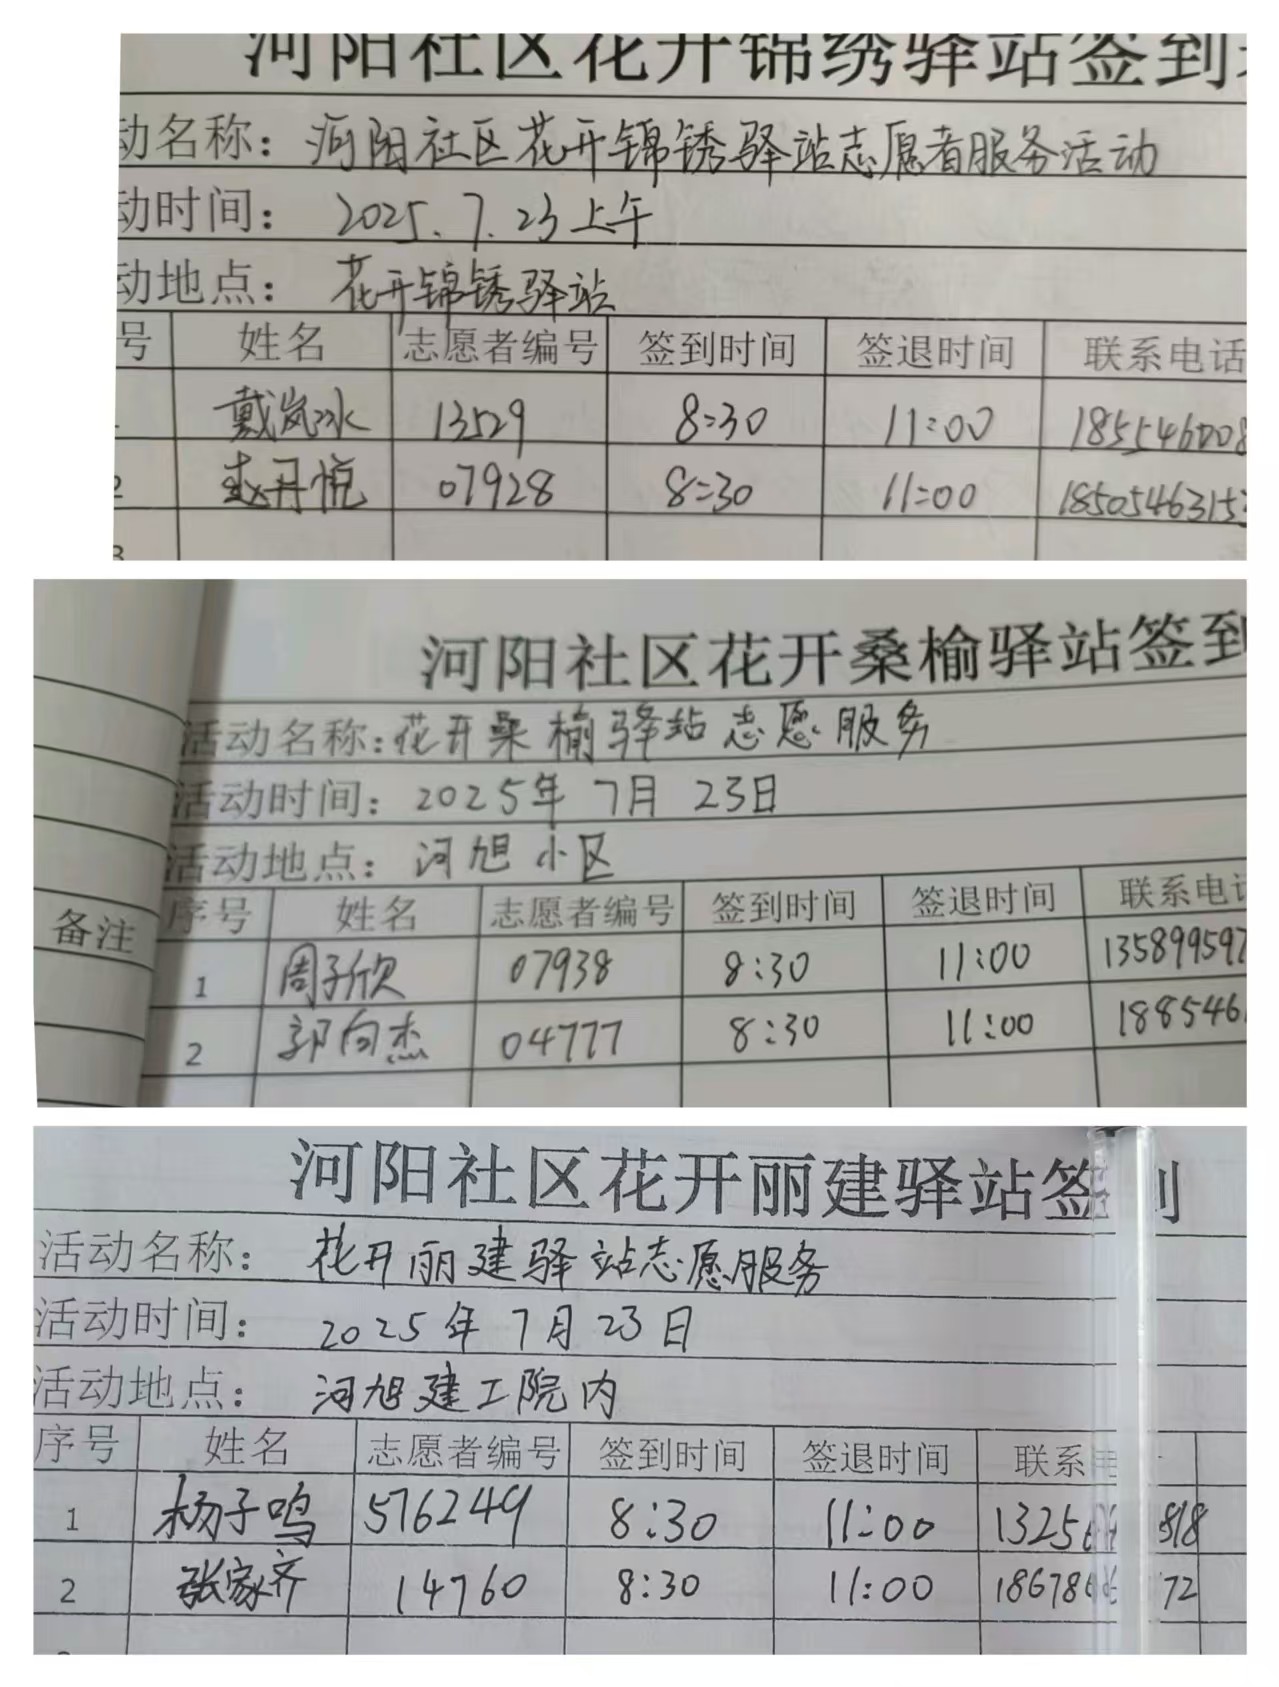 河阳社区花开锦绣驿站签到
动名称：河阳社区花开锦锈驿站志愿者服务活动
动时间：2025.7.23上午
动地点：花开锦锈驿站
号 姓名 志愿者编号 签到时间 签退时间 联系电话
戴岚冰 13529 8:30 11:00
2 赵丹悦 07928 8:30 11:00 1850546315
3
河阳社区花开桑榆驿站签到
活动名称：花开桑榆驿站志愿服务
活动时间：2025年7月23日
活动地点：河旭小区
备注 序号 姓名 志愿者编号 签到时间 签退时间 联系电
1 周子欣 07938 8:30 11:00 135899597
2 郭向杰 04777 8:30 11:00 188546
河阳社区花开丽建驿站签到
活动名称：花开丽建驿站志愿服务
活动时间：2025年7月23日
活动地点：河旭建工院内
序号 姓名 志愿者编号 签到时间 签退时间 联系
1 杨子鸣 576249 8:30 11:00 1325 818
2 张家齐 14760 8:30 11:00 18678 72